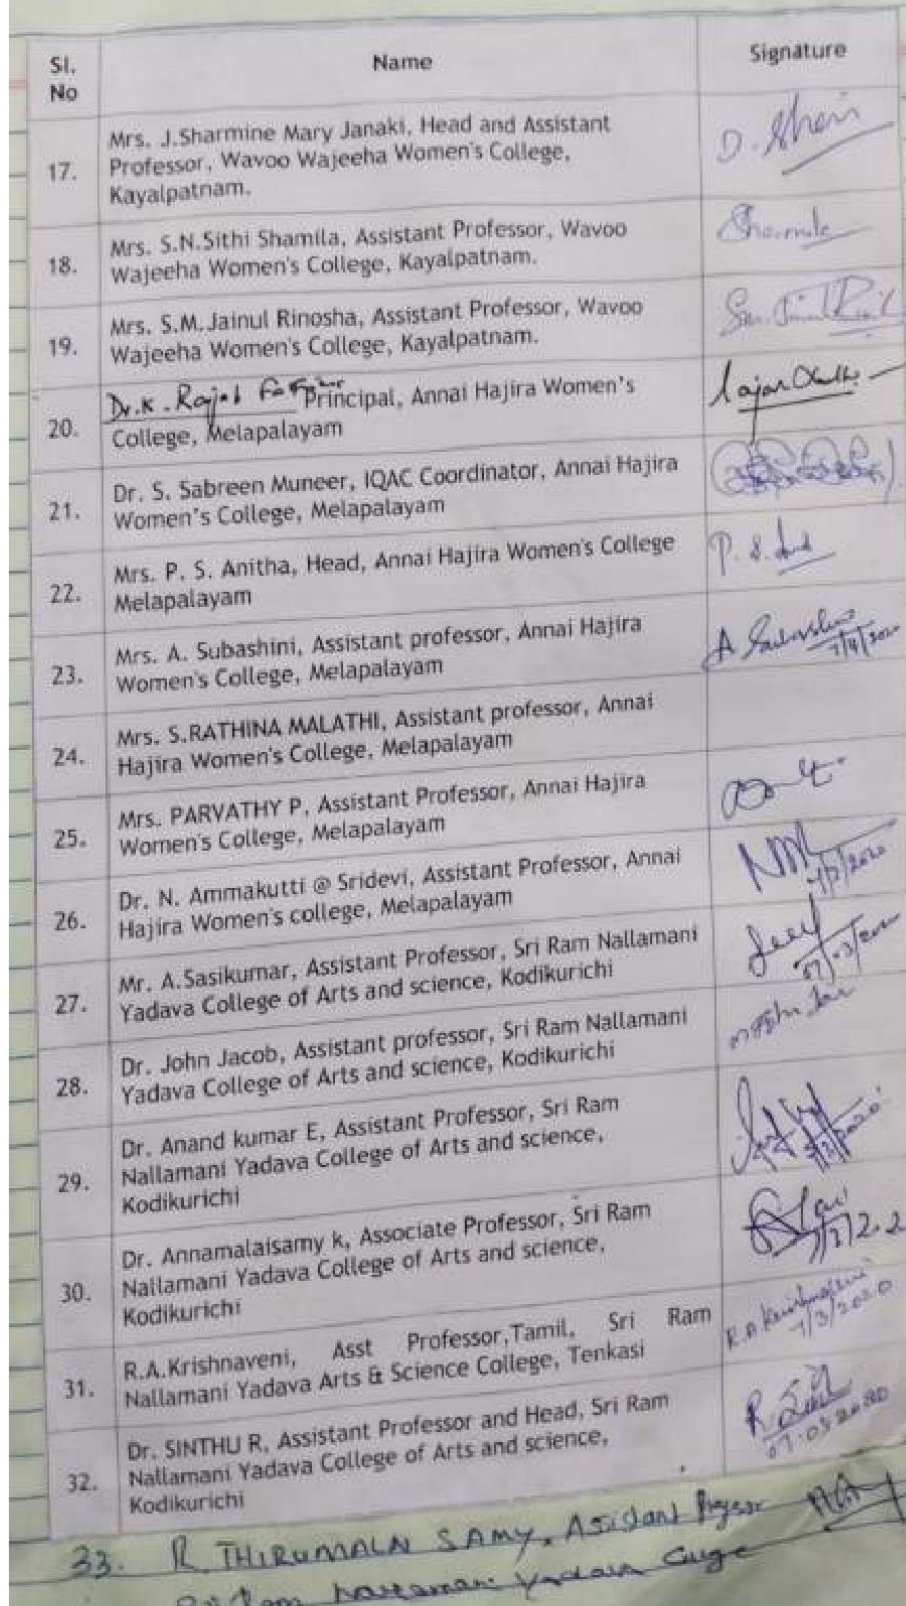 Sl.
No
Name
Signature
17.
Mrs. J.Sharmine Mary Janaki, Head and Assistant
Professor, Wavoo Wajeeha Women's College,
Kayalpatnam.
18.
Mrs. S.N.Sithi Shamila, Assistant Professor, Wavoo
Wajeeha Women's College, Kayalpatnam.
19.
Mrs. S.M.Jainul Rinosha, Assistant Professor, Wavoo
Wajeeha Women's College, Kayalpatnam.
20.
Dr.K. Principal, Annai Hajira Women's
College, Melapalayam
21.
Dr. S. Sabreen Muneer, IQAC Coordinator, Annai Hajira
Women's College, Melapalayam
22.
Mrs. P. S. Anitha, Head, Annai Hajira Women's College
Melapalayam
P. S.
23.
Mrs. A. Subashini, Assistant professor, Annai Hajira
Women's College, Melapalayam
24.
Mrs. S.RATHINA MALATHI, Assistant professor, Annai
Hajira Women's College, Melapalayam
25.
Mrs. PARVATHY P, Assistant Professor, Annai Hajira
Women's College, Melapalayam
26.
Dr. N. Ammakutti @ Sridevi, Assistant Professor, Annai
Hajira Women's college, Melapalayam
27.
Mr. A.Sasikumar, Assistant Professor, Sri Ram Nallamani
Yadava College of Arts and science, Kodikurichi
28.
Dr. John Jacob, Assistant professor, Sri Ram Nallamani
Yadava College of Arts and science, Kodikurichi
29.
Dr. Anand kumar E, Assistant Professor, Sri Ram
Nallamani Yadava College of Arts and science,
Kodikurichi
30.
Dr. Annamalaisamy k, Associate Professor, Sri Ram
Nallamani Yadava College of Arts and science,
Kodikurichi
31.
R.A.Krishnaveni, Asst Professor,Tamil, Sri Ram
Nallamani Yadava Arts & Science College, Tenkasi
R.A Krishnaveni
7/3/2020
32.
Dr. SINTHU R, Assistant Professor and Head, Sri Ram
Nallamani Yadava College of Arts and science,
Kodikurichi
07.03.2020
33. R. THIRUMALAI SAMY, Assistant Professor